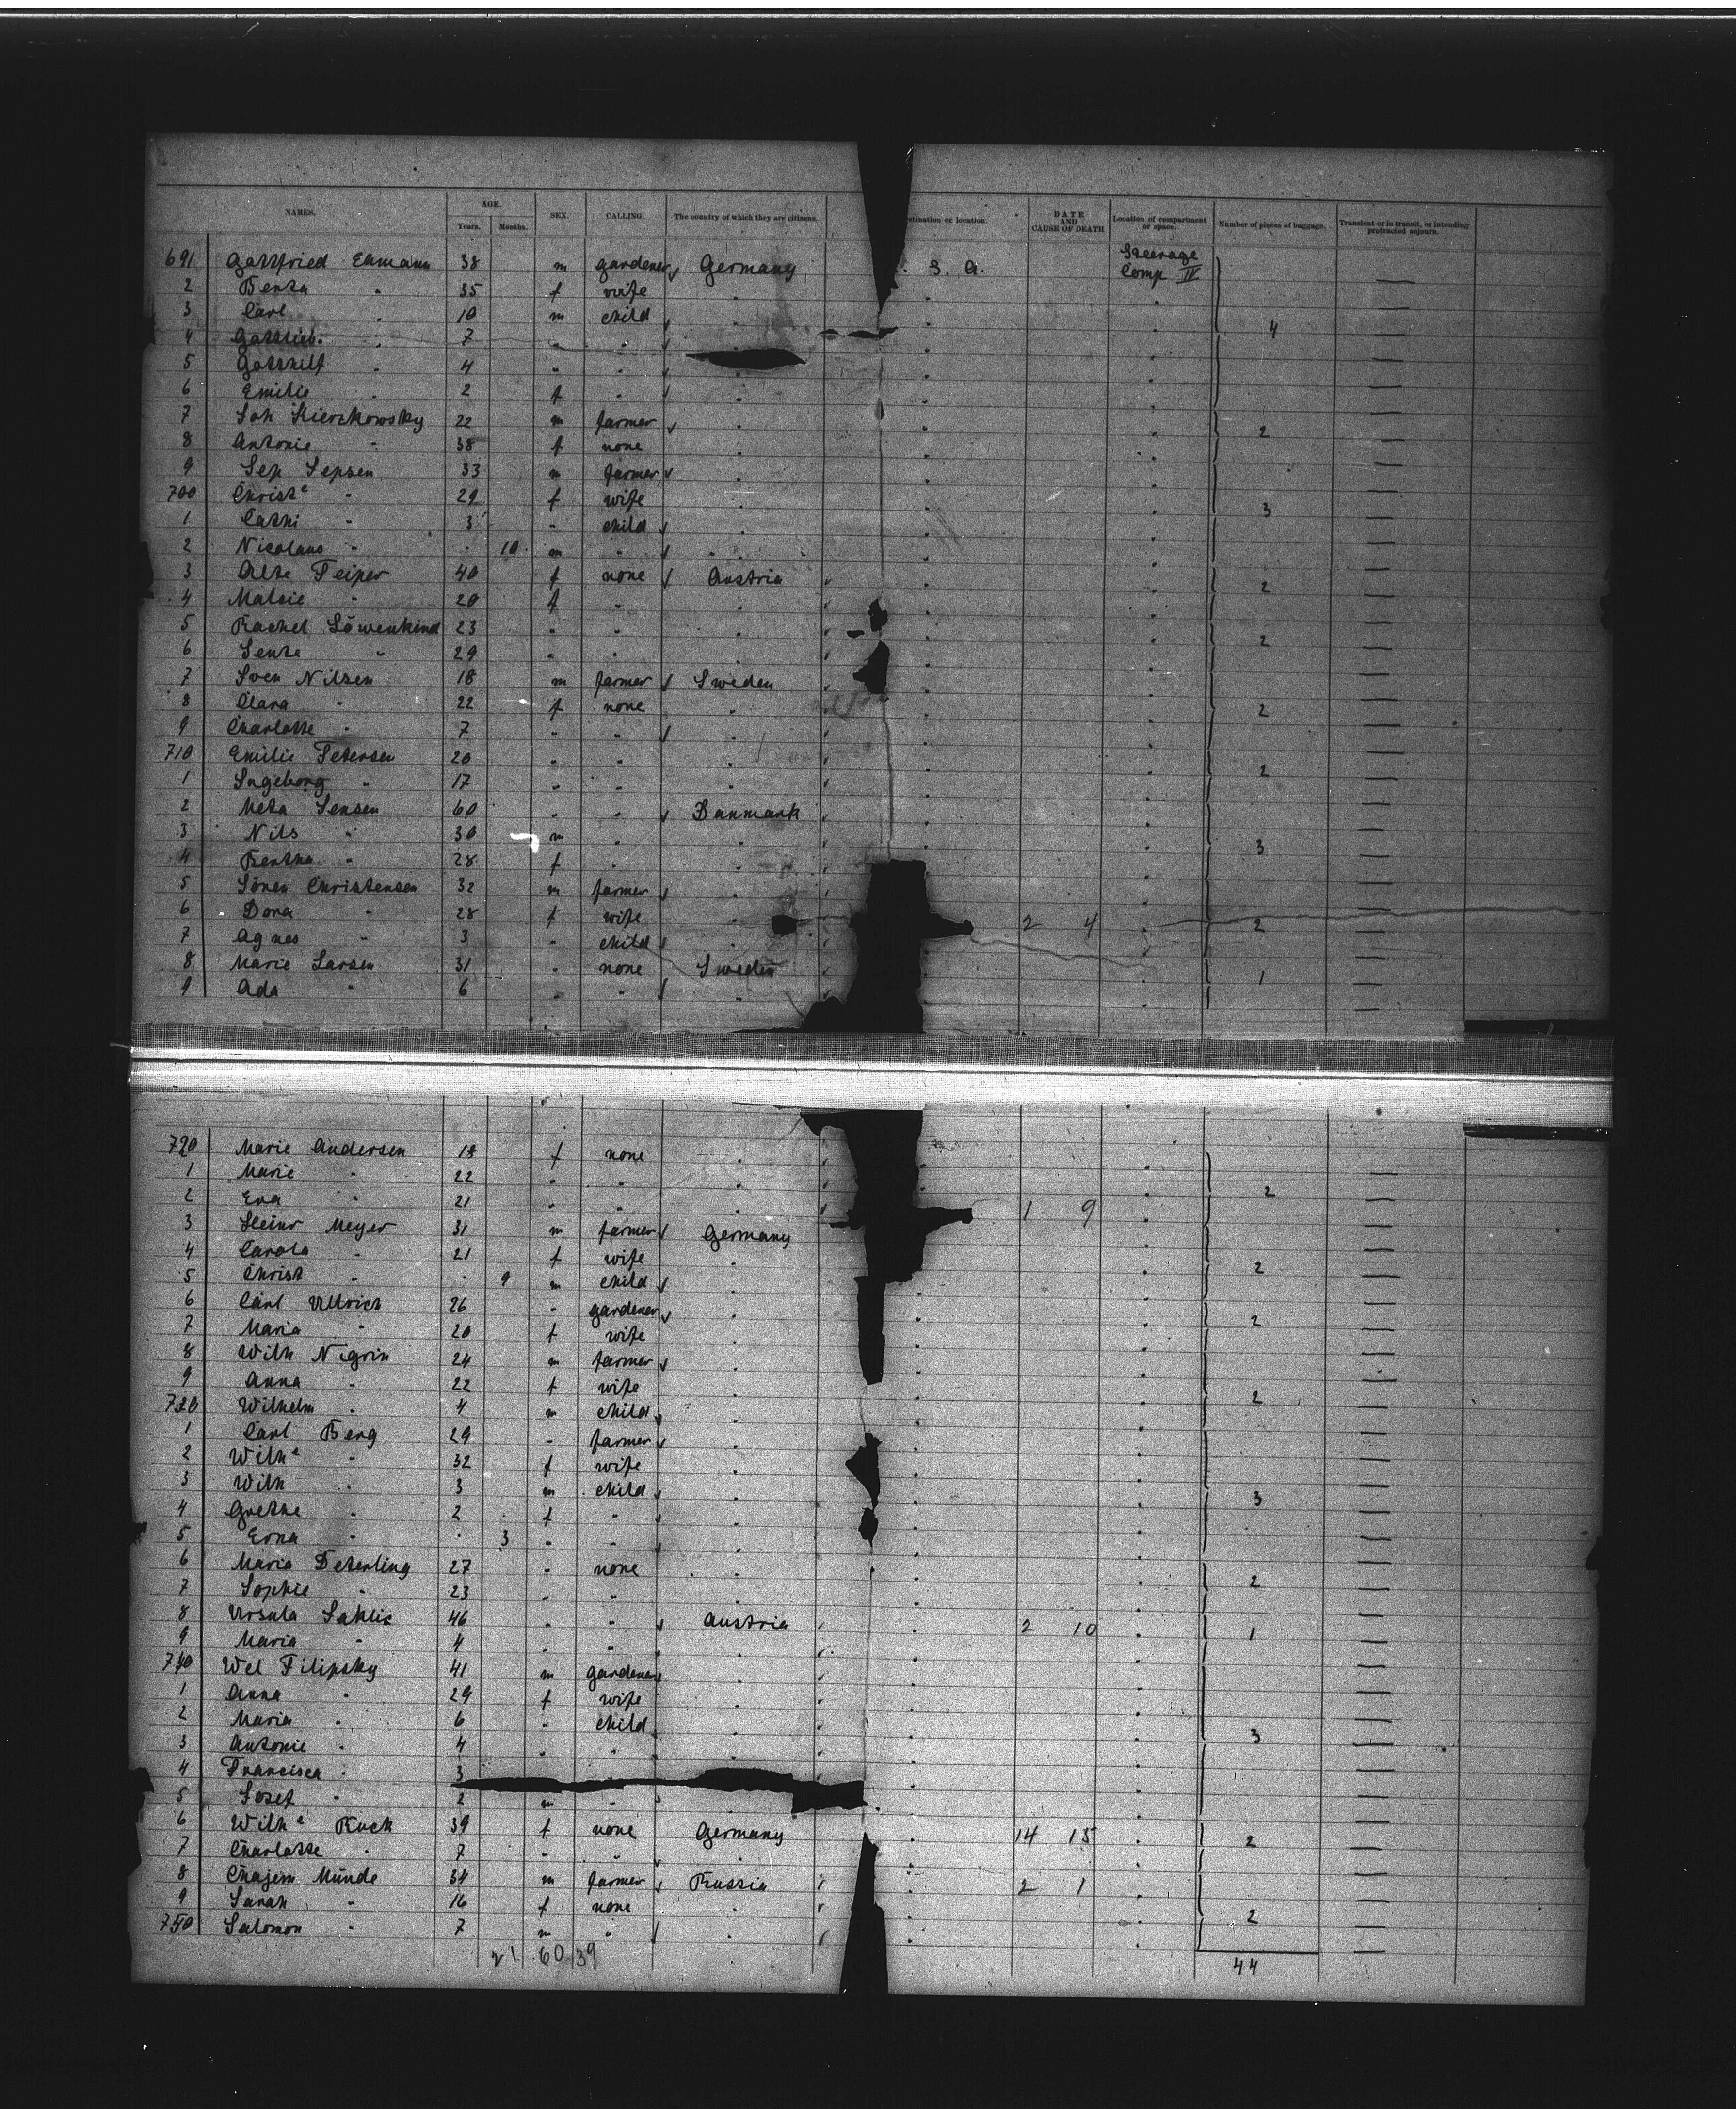 NAMES. AGE. Years. Months. SEX. CALLING. The country of which they are citizens. stination or location. DATE AND CAUSE OF DEATH Location of compartment or space. Number of pieces of baggage. Transient or in transit, or intending protracted sojourn.
691 Gottfried Ehmann 38 m gardener Germany . S. A. Steerage Comp IV
2 Berta " 35 f wife "
3 Carl " 10 m child " 4
4 Gottlieb " 7 " "
5 Gotthilf " 4 " " "
6 Emilie " 2 f "
7 Joh Kierzkowsky 22 m farmer " 2
8 Antonie " 38 f none "
9 Jep Jepsen 33 m farmer "
700 Christe " 29 f wife " 3
1 Cathi " 3 " child "
2 Nicolaus " . 10 m " "
3 Alte Feiper 40 f none Austria 2
4 Malcie " 20 f " "
5 Rachel Löwenkind 23 " " " 2
6 Jente " 29 " " "
7 Sven Nilsen 18 m farmer Sweden
8 Clara " 22 f none " 2
9 Charlotte " 7 " " "
710 Emilie Petersen 20 " " " 2
1 Ingeborg " 17 " " "
2 Meta Jensen 60 " " Danmark
3 Nils " 30 m " " 3
4 Bertha " 28 f " "
5 Sören Christensen 32 m farmer "
6 Dora " 28 f wife " 2 4 2
7 Agnes " 3 " child "
8 Marie Larsen 31 " none Sweden 1
9 Ada " 6 " " "
720 Marie Andersen 18 f none "
1 Marie " 22 " " " 2
2 Eva " 21 " " " 1 9
3 Heinr Meyer 31 m farmer Germany
4 Carola " 21 f wife " 2
5 Christ " . 9 m child "
6 Carl Ullrich 26 " gardener " 2
7 Maria " 20 f wife "
8 Wilh Nigrin 24 m farmer "
9 Anna " 22 f wife " 2
730 Wilhelm " 4 m child "
1 Carl Berg 29 " farmer "
2 Wilhe " 32 f wife "
3 Wilh " 3 m child " 3
4 Grethe " 2 f " "
5 Erna " . 3 " " "
6 Maria Deterling 27 " none " 2
7 Sophie " 23 " " "
8 Ursula Sahlic 46 " " Austria 2 10 1
9 Maria " 4 " " "
740 Wel Filipsky 41 m gardener "
1 Anna " 29 f wife "
2 Maria " 6 " child " 3
3 Antonie " 4 " " "
4 Francisca " 3
5 Josef " 2 m "
6 Wilhe Ruck 39 f none Germany 14 15 2
7 Charlotte " 7 " "
8 Chajem Münde 34 m farmer Russia 2 1
9 Sarah " 16 f none " 2
750 Salomon " 7 m " "
21 60 39 44